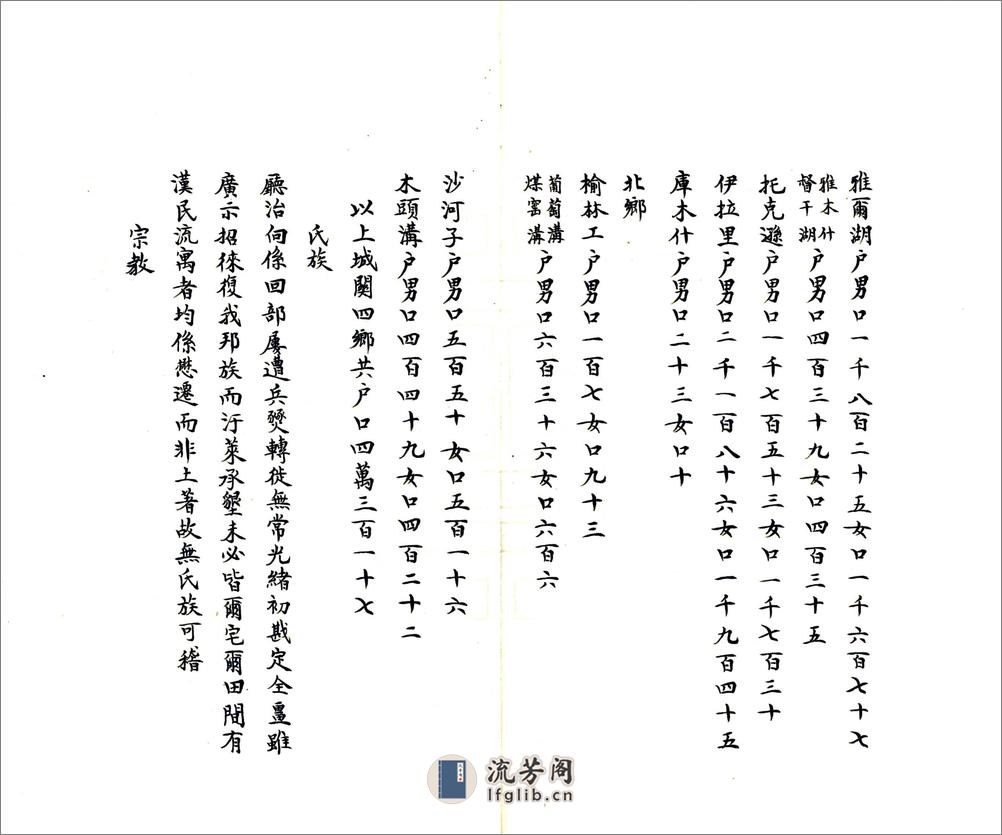 雅爾湖户男口一千八百二十五女口一千六百七十七
雅木什
督干湖户男口四百三十九女口四百三十五
托克遜户男口一千七百五十三女口一千七百三十
伊拉里户男口二千一百八十六女口一千九百四十五
庫木什户男口二十三女口十
北鄉
榆林工户男口一百七女口九十三
葡萄溝
煤窑溝户男口六百三十六女口六百六
沙河子户男口五百五十女口五百一十六
木頭溝户男口四百四十九女口四百二十二
以上城關四鄉共户口四萬三百一十七
氏族
廳治向係回部屢遭兵燹轉徙無常光緒初戡定全畺雖
廣示招徠復我邦族而汙萊承墾未必皆爾宅爾田間有
漢民流寓者均係懋遷而非土著故無氏族可稽
宗教
流芳阁
lfglib.cn